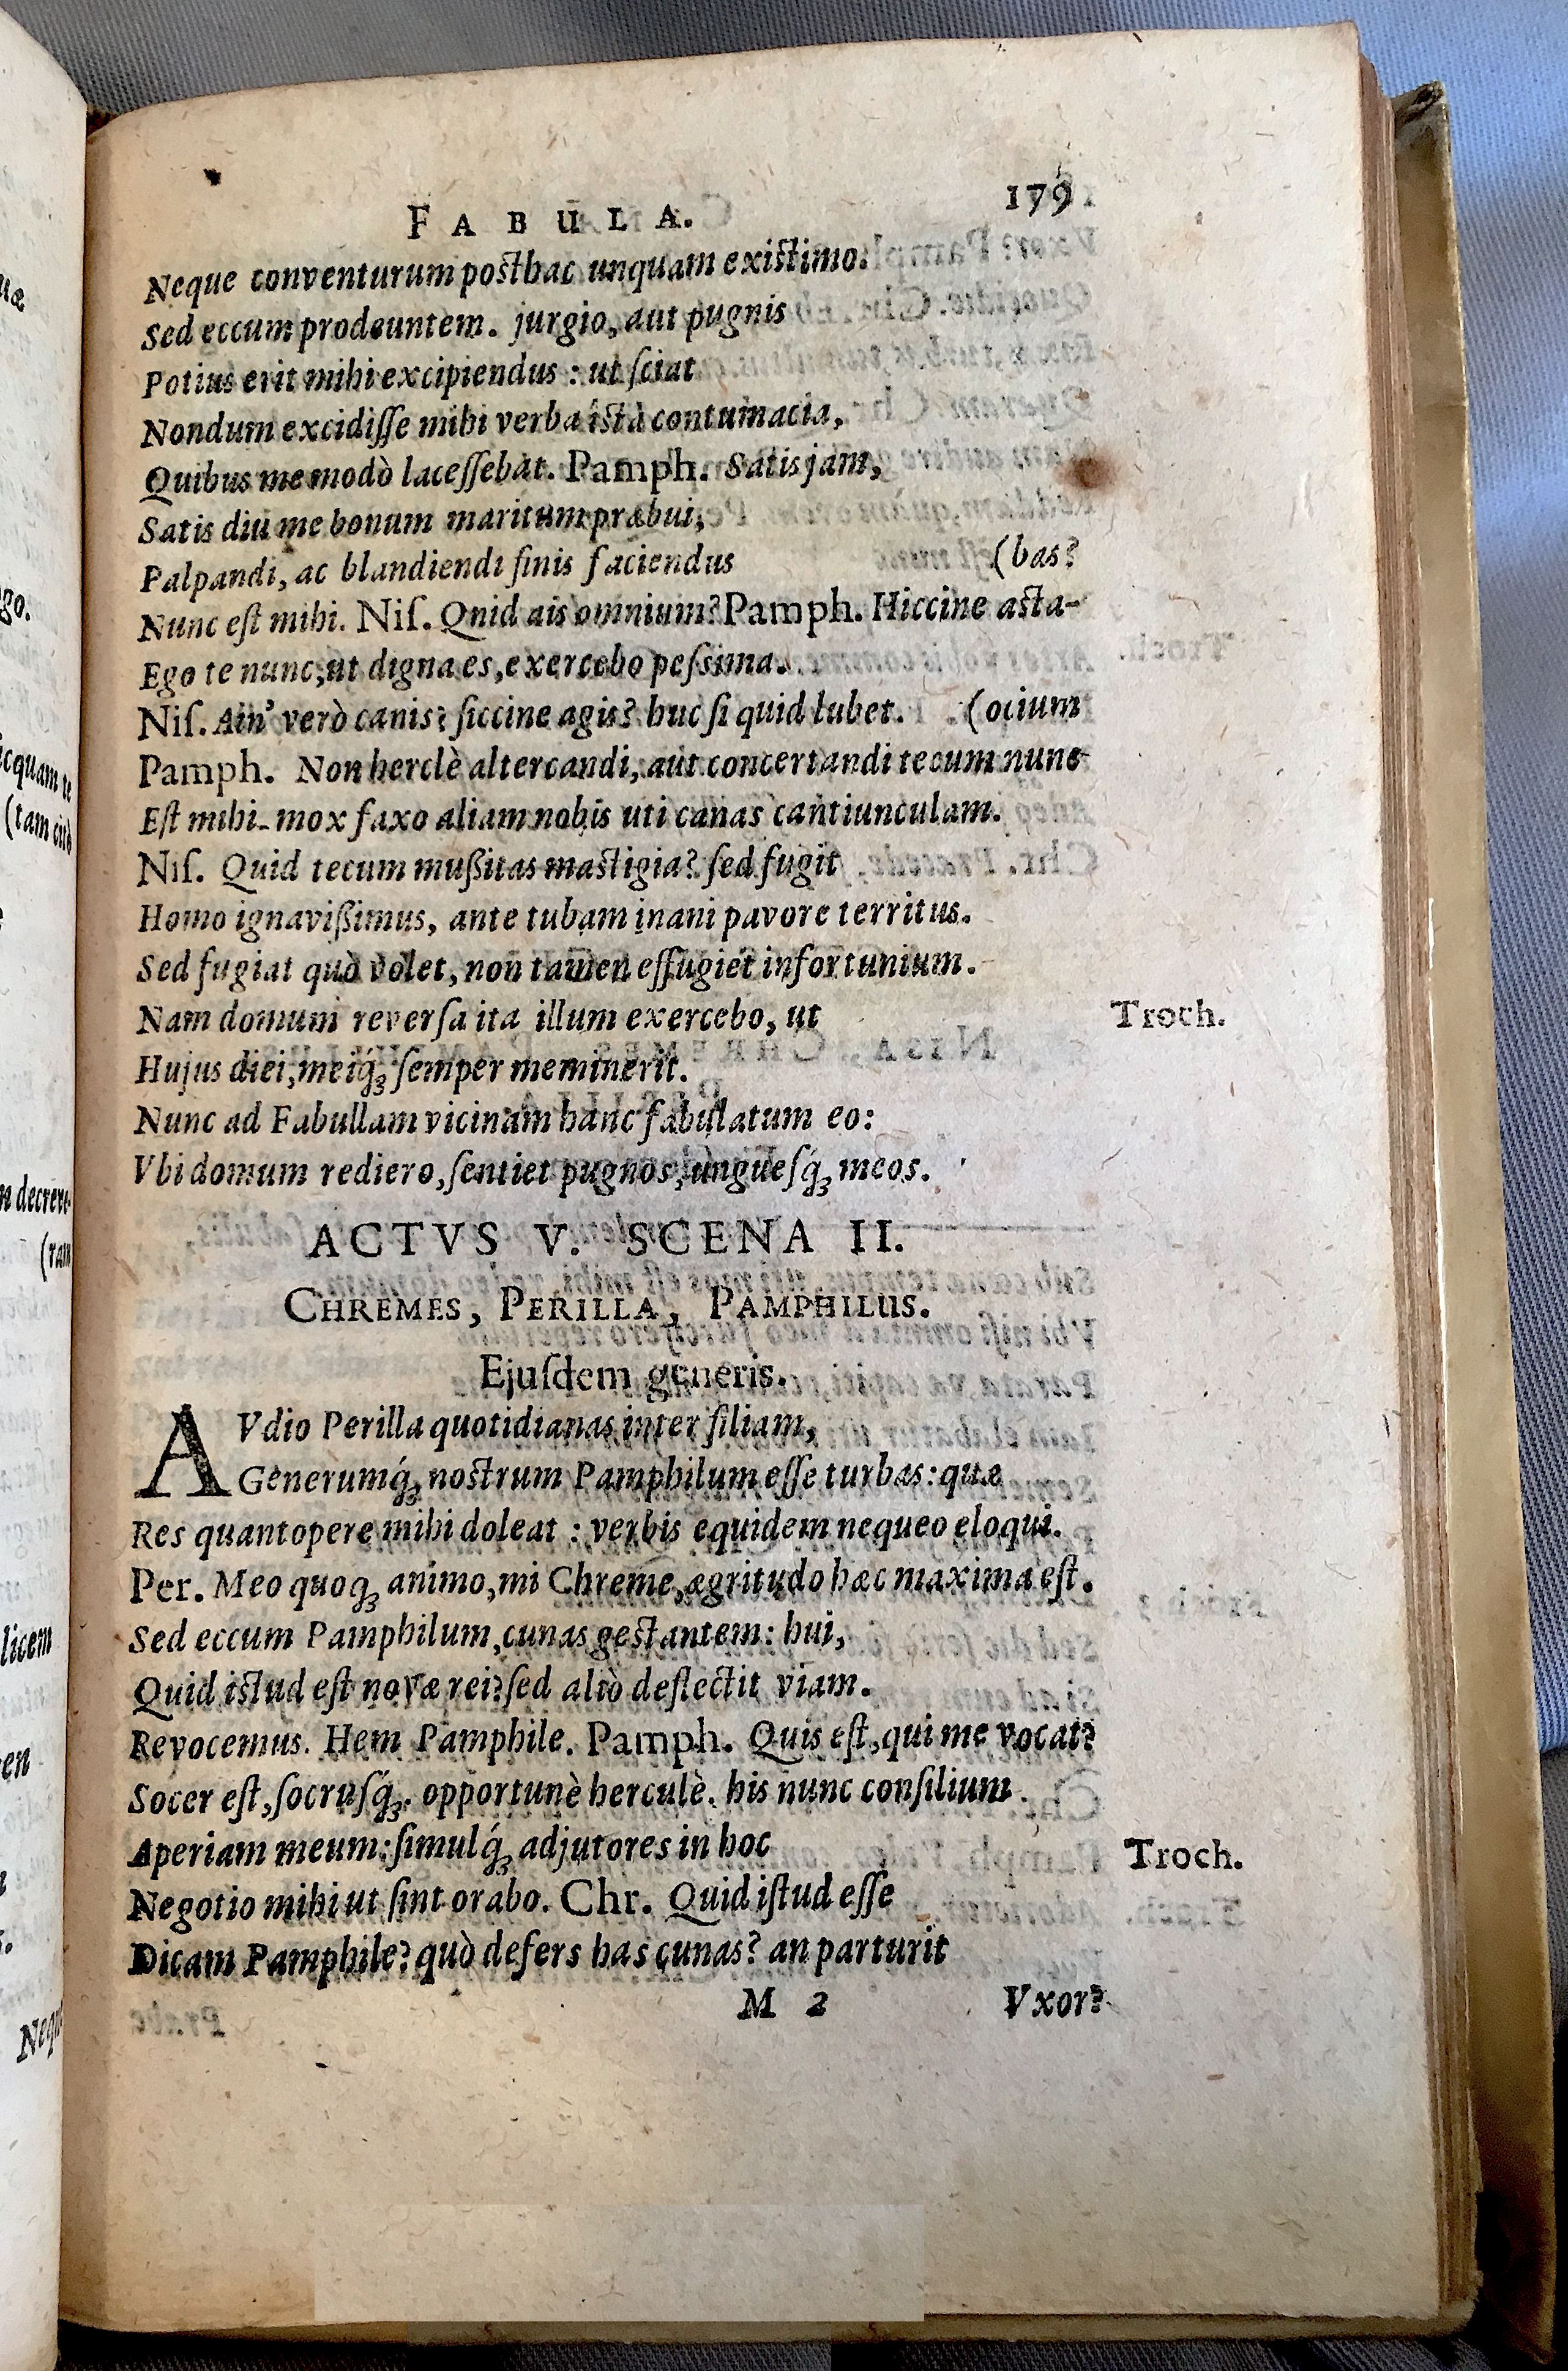 FABULA. 179
Neque conventurum postbac unquam existimo.
Sed eccum prodeuntem. jurgio, aut pugnis
Potius erit mihi excipiendus : ut ſciat
Nondum excidiſſe mihi verba istâ contumacia,
Quibus me modò laceſſebat. Pamph. Satis jam,
Satis diu me bonum maritum præbui;
Palpandi, ac blandiendi finis faciendus (bas?
Nunc eſt mihi. Niſ. Qnid ais omnium? Pamph. Hiccine asta-
Ego te nunc, ut digna es, exercebo peſsima.
Niſ. Ain' verò canis? ſiccine agis? huc ſi quid lubet. (ocium
Pamph. Non herclè altercandi, aut concertandi tecum nunc
Eſt mihi. mox faxo aliam nobis uti canas cantiunculam.
Niſ. Quid tecum mußitas mastigia? ſed fugit
Homo ignavißimus, ante tubam inani pavore territus.
Sed fugiat quò volet, non tamen effugiet infortunium.
Nam domum reverſa ita illum exercebo, ut Troch.
Hujus diei, meiq́ꝫ ſemper meminerit.
Nunc ad Fabullam vicinam hanc fabulatum eo:
Vbi domum rediero, ſentiet pugnos, ungueſq́ꝫ meos.
ACTVS V. SCENA II.
CHREMES, PERILLA, PAMPHILUS.
Ejuſdem generis.
AVdio Perilla quotidianas inter filiam,
Generumq́ꝫ nostrum Pamphilum eſſe turbas: quæ
Res quantopere mihi doleat : verbis equidem nequeo eloqui.
Per. Meo quoqꝫ animo, mi Chreme, ægritudo hæc maxima eſt.
Sed eccum Pamphilum, cunas gestantem: hui,
Quid istud eſt novæ rei? ſed aliò deflectit viam.
Revocemus. Hem Pamphile. Pamph. Quis eſt, qui me vocat?
Socer eſt, ſocruſq́ꝫ. opportunè herculè. his nunc conſilium
Aperiam meum: ſimulq́ꝫ adjutores in hoc Troch.
Negotio mihi ut ſint orabo. Chr. Quid iſtud eſſe
Dicam Pamphile? quò defers has cunas? an parturit
M 2 Vxor?